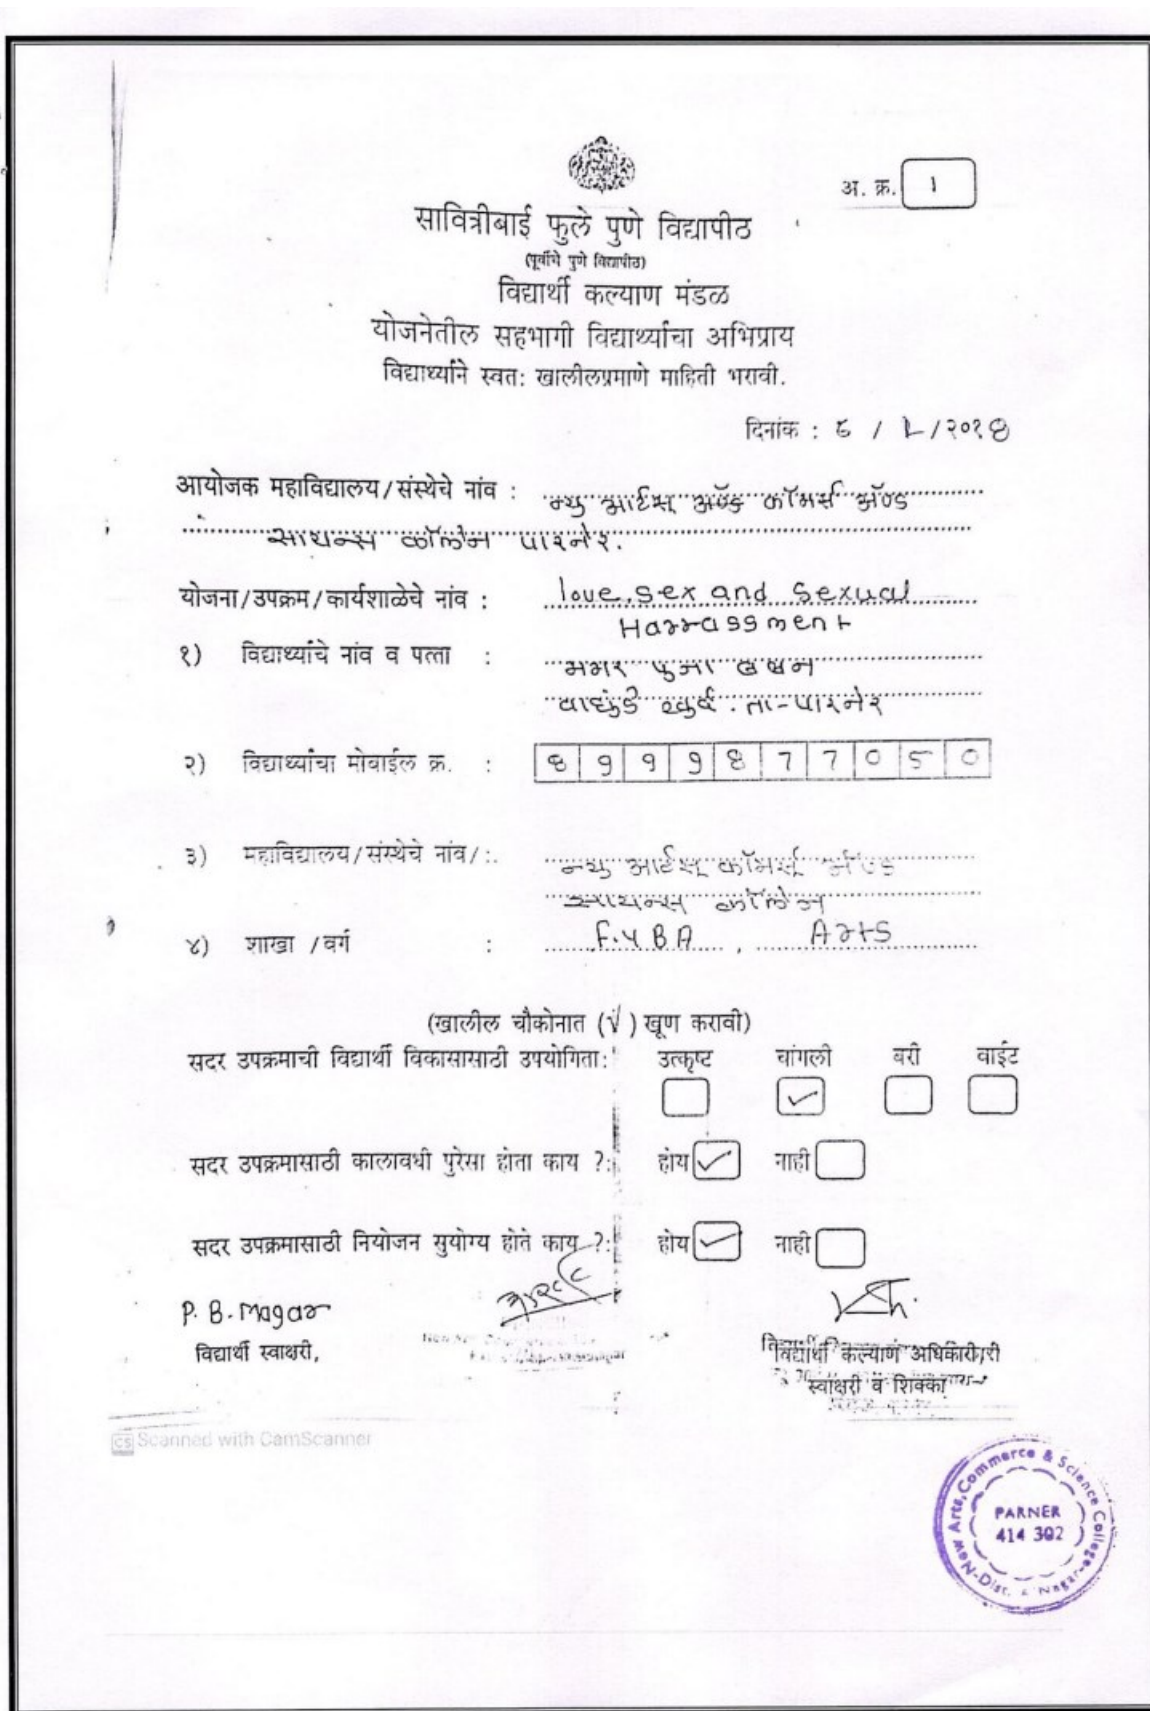 अ. क्र. 1
सावित्रीबाई फुले पुणे विद्यापीठ
(पूर्वीचे पुणे विद्यापीठ)
विद्यार्थी कल्याण मंडळ
योजनेतील सहभागी विद्यार्थ्यांचा अभिप्राय
विद्यार्थ्याने स्वत: खालीलप्रमाणे माहिती भरावी.
दिनांक : / /२०१
आयोजक महाविद्यालय/संस्थेचे नांव : न्यु आर्टस् अॅण्ड कॉमर्स अॅण्ड
सायन्स कॉलेज पारनेर.
योजना/उपक्रम/कार्यशाळेचे नांव : love, sex and Sexual
Harrassment
१) विद्यार्थ्यांचे नांव व पत्ता : मगर पुजा बबन
वाघुंडे खुर्द. ता-पारनेर
२) विद्यार्थ्यांचा मोबाईल क्र. :
३) महाविद्यालय/संस्थेचे नांव/ :. न्यु आर्टस् कॉमर्स अॅण्ड
सायन्स कॉलेज
४) शाखा /वर्ग : F.Y BA , Arts
(खालील चौकोनात (√) खूण करावी)
सदर उपक्रमाची विद्यार्थी विकासासाठी उपयोगिता: उत्कृष्ट चांगली बरी वाईट
सदर उपक्रमासाठी कालावधी पुरेसा होता काय ?: होय नाही
सदर उपक्रमासाठी नियोजन सुयोग्य होते काय ?: होय नाही
P. B. Magar
विद्यार्थी स्वाक्षरी,
विद्यार्थी कल्याण अधिकारी
स्वाक्षरी व शिक्का
CS Scanned with CamScanner
New Arts, Commerce & Science College
PARNER
414 302
Dist. A' Nagar